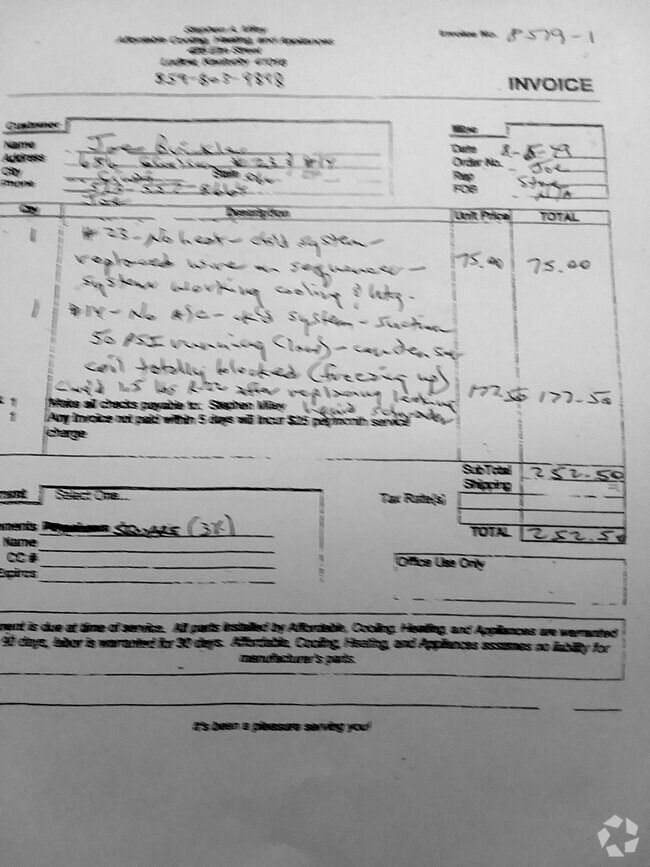 Stephen A. Wiley
Affordable Cooling, Heating, and Appliances
Elm Street
Ludlow, Kentucky
859-803-9898
Invoice No. 8579-1
INVOICE
Customer
Name Joe
Address #23 & #14
City State
Phone
Joe
Misc
Date
Order No. Joe
Rep Steve
FOB N/A
Qty Description Unit Price TOTAL
1 #23 - No heat - chkd system -
replaced wire on sequencer - 75.00 75.00
system working cooling & htg.
1 #14 - No A/C - chkd system - suction
50 PSI running (low) - condenser
coil totally blocked (freezing up)
1.5 lbs R-22 after replacing leaking 177.50 177.50
liquid schrader
Make all checks payable to: Stephen Wiley
Any invoice not paid within 5 days will incur $25 per/month service
charge
SubTotal 252.50
Shipping
Tax Rate(s)
TOTAL 252.50
Select One...
(3%)
Name
CC #
Expires
Office Use Only
ment is due at time of service. All parts installed by Affordable, Cooling, Heating, and Appliances are warranted
90 days, labor is warranted for 30 days. Affordable, Cooling, Heating, and Appliances assumes no liability for
manufacturer's parts.
It's been a pleasure serving you!